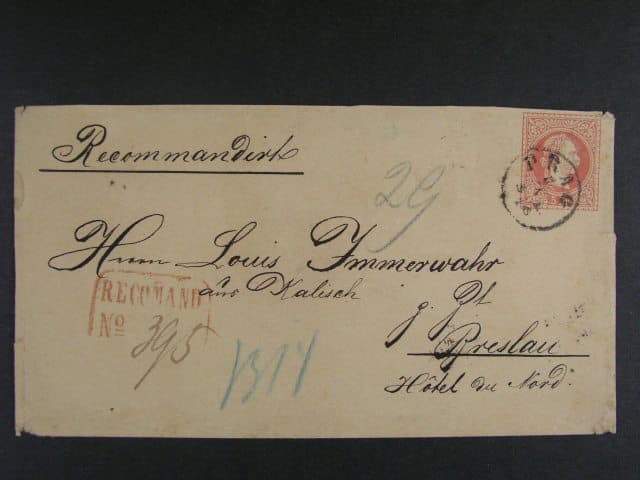 Recommandirt
PRAG
29
Herrn Louis Immerwahr
aus Kalisch
RECOMAND
No 395
z. Zt
Breslau
1314
Hôtel du Nord.